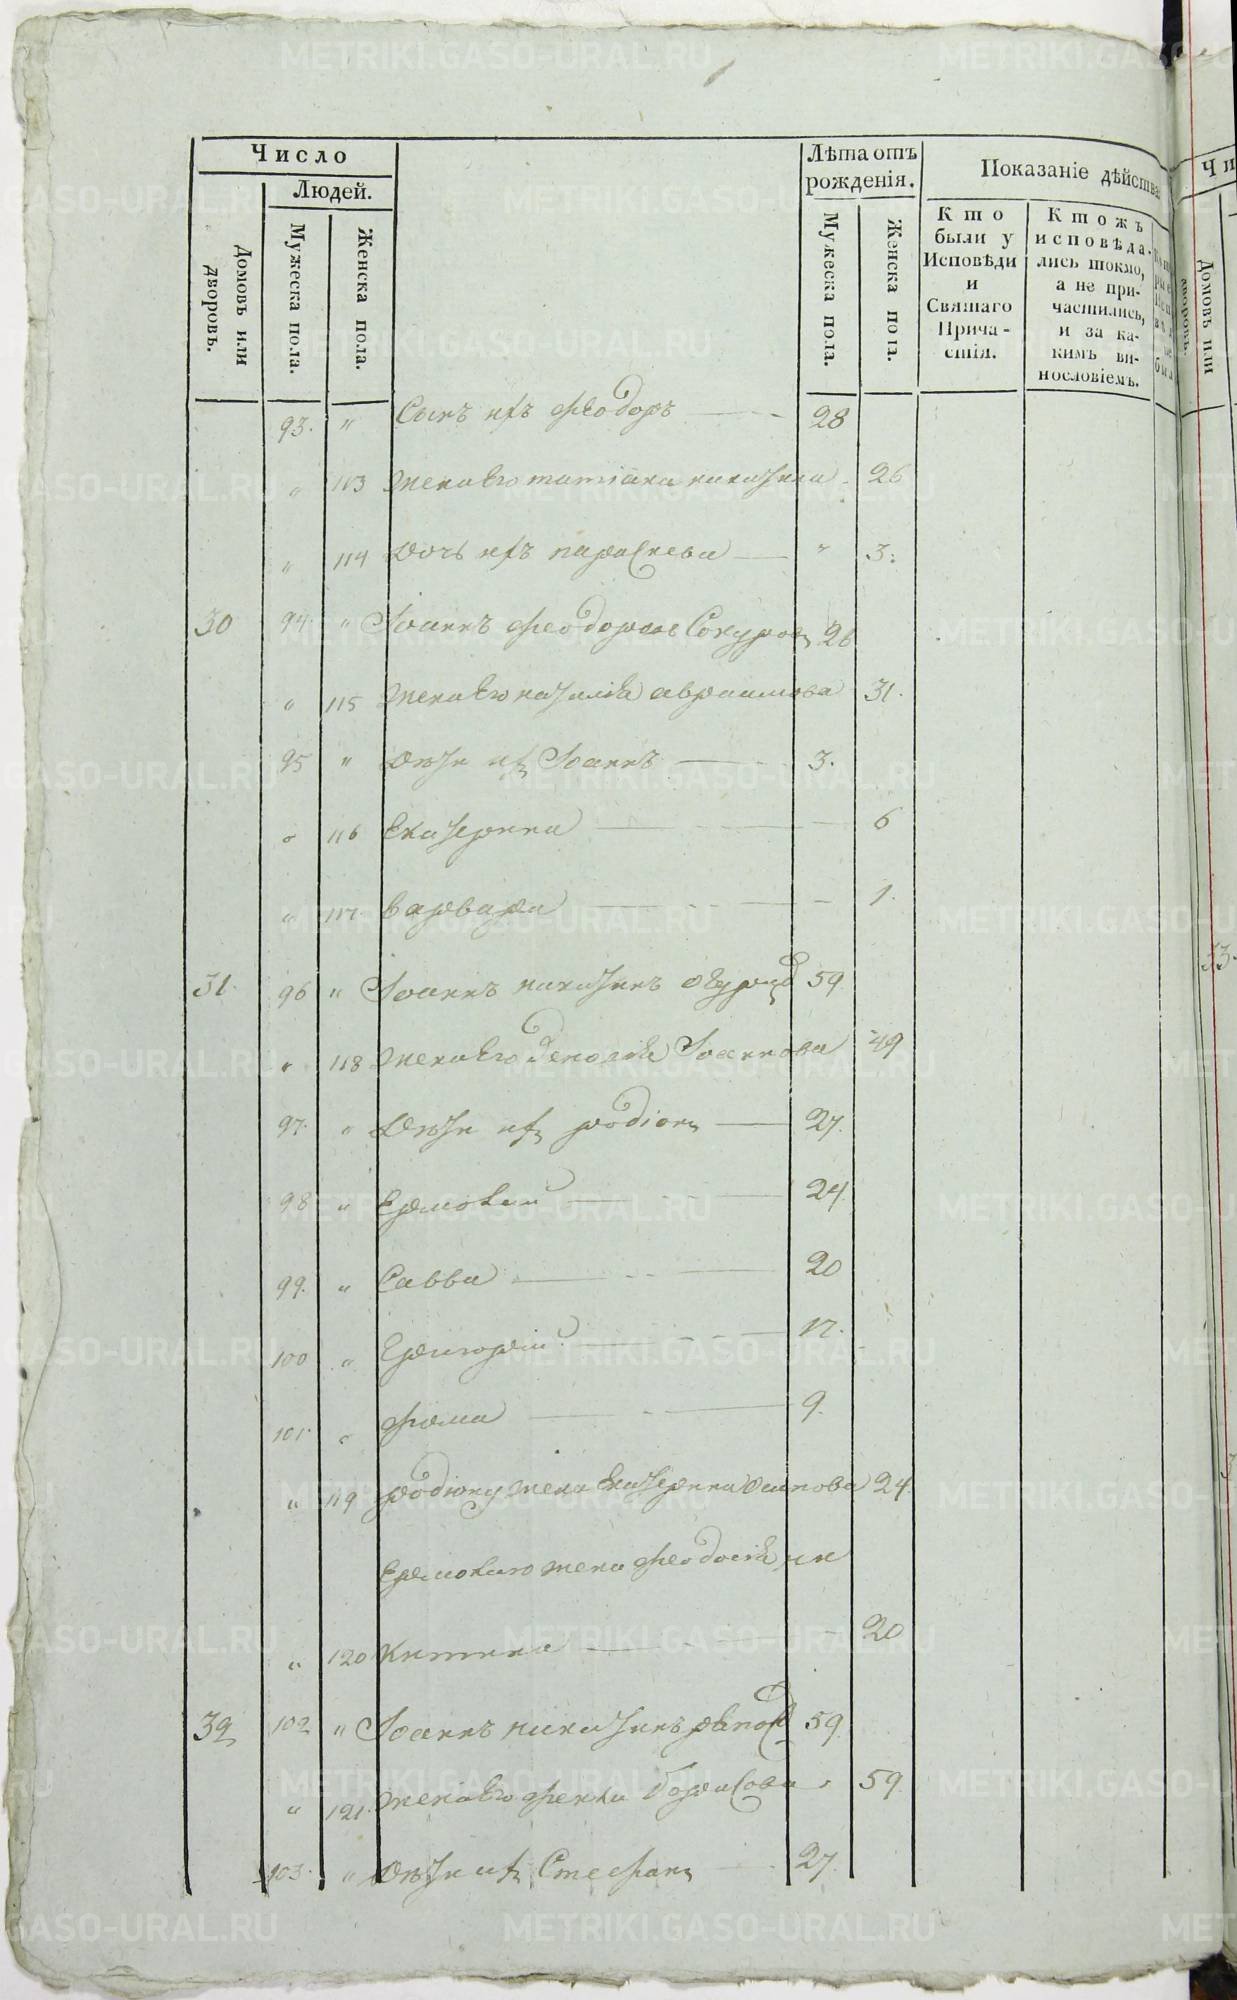 Число
Людей.
Домовъ или дворовъ.
Мужеска пола.
Женска пола.
Лѣта отъ рожденія.
Мужеска пола.
Женска пола.
Показаніе дѣйства
Кто были у Исповѣди и Святаго Причастія.
Ктожъ исповѣдались токмо, а не причастились, и за какимъ винословіемъ.
93. " Сынъ ихъ Феодоръ 28
" 113 жена Его татіана никитина 26
" 114 дочь ихъ параскева " 3.
30 94 " Іоаннъ феодоровъ 26
" 115 жена Его наталіѧ авраамова 31.
95 " дѣти ихъ Іоаннъ 3.
" 116 Екатерина 6
" 117. варвара 1.
31. 96 " Іоаннъ никитинъ 59
" 118 жена Его Іоаннова 49
97. " Дѣти ихъ родіонъ 27.
98 " Ермолай 24
99. " Савва 20
100 " Григорій 17.
101. " фома 9.
" 119 родіону жена Екатерина Осипова 24.
Ермолаю жена феодосіѧ ни
" 120 китина 20
32 102 " Іоаннъ никитинъ 59.
" 121. жена Его фекла борисова 59.
103. " дѣти ихъ Стефанъ 27.
METRIKI.GASO-URAL.RU